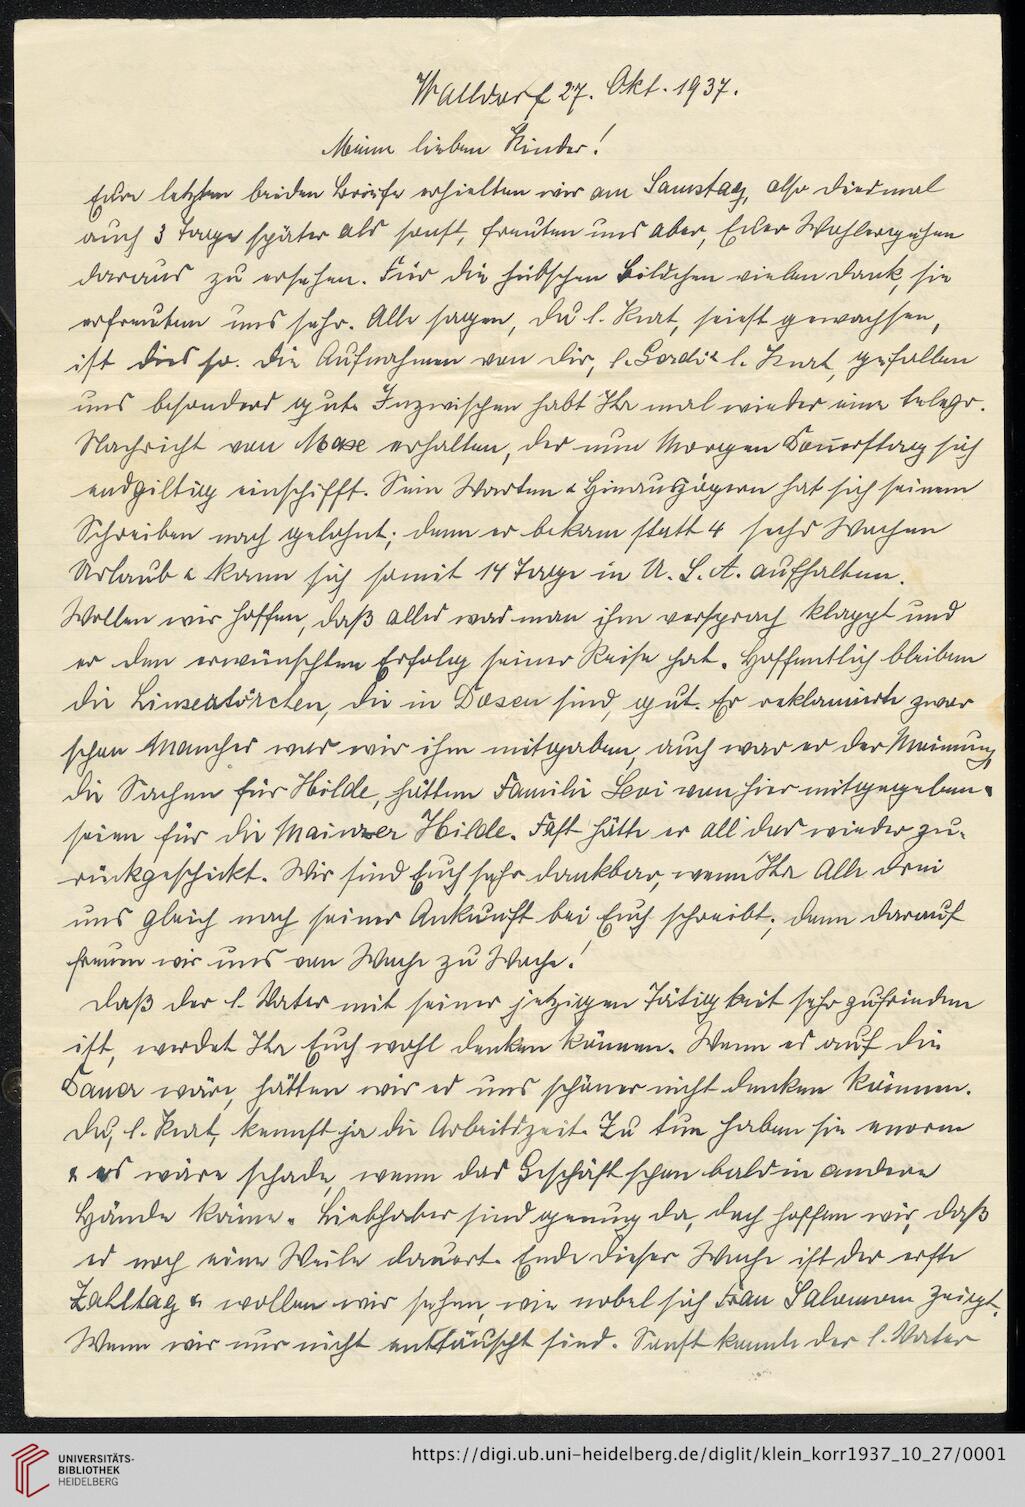 Walldorf 27. Okt. 1937.
Meine lieben Kinder!
Eure letzten beiden Briefe erhielten wir am Samstag, also diesmal
auch 3 Tage später als sonst, freuten uns aber, Euer Wohlergehen
daraus zu ersehen. Für die hübschen Bildchen vielen Dank, sie
erfreuten uns sehr. Alle sagen, Du l. Kurt, seiest gewachsen,
ist dies so. Die Aufnahmen von Dir, l. Gordi & l. Kurt, gefallen
uns besonders gut. Inzwischen habt Ihr mal wieder eine telegr.
Nachricht von Max erhalten, der nun Morgen Donnerstag sich
endgiltig einschifft. Sein Warten & Hinauszögern hat sich seinem
Schreiben nach gelohnt; denn er bekam statt 4 sechs Wochen
Urlaub & kann sich somit 14 Tage in U. S. A. aufhalten.
Wollen wir hoffen, daß alles was man ihm versprach klappt und
er den erwünschten Erfolg seiner Reise hat. Hoffentlich bleiben
die Linsertörtchen, die in Dosen sind, gut. Er reklamierte zwar
schon Manches was wir ihm mitgaben, auch war er der Meinung,
die Sachen für Hilde, hätten Familie Levi von hier mitgegeben &
seien für die Mainzer Hilde. Fast hätte er all' das wieder zu-
rückgeschickt. Wir sind Euch sehr dankbar, wenn Ihr Alle drei
uns gleich nach seiner Ankunft bei Euch schreibt; denn darauf
freuen wir uns von Woche zu Woche!
Daß der l. Vater mit seiner jetzigen Tätigkeit sehr zufrieden
ist, werdet Ihr Euch wohl denken können. Wenn es auf die
Dauer wäre, hätten wir es uns schöner nicht denken können.
Du, l. Kurt, kennst ja die Arbeitszeit. Zu tun haben sie enorm
& es wäre schade, wenn das Geschäft schon bald in andere
Hände käme. Liebhaber sind genug da, doch hoffen wir, daß
es noch eine Weile dauert. Ende dieser Woche ist der erste
Zahltag & wollen wir sehen, wie nobel sich Frau Salomon zeigt.
Wenn wir nur nicht enttäuscht sind. Sonst konnte der l. Vater
UNIVERSITÄTS-
BIBLIOTHEK
HEIDELBERG
https://digi.ub.uni-heidelberg.de/diglit/klein_korr1937_10_27/0001